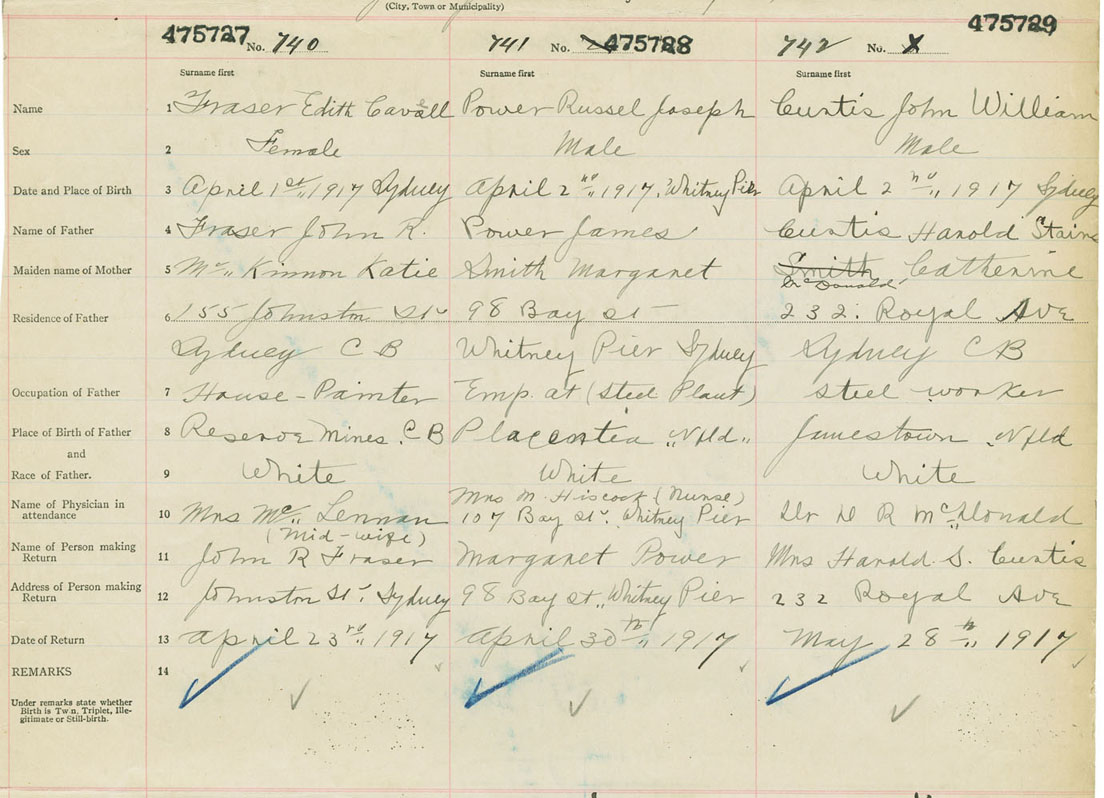 (City, Town or Municipality)
475727 No. 740 741 No. 475728 742 No. X 475729
Surname first Surname first Surname first
Name 1 Fraser Edith Cavell Power Russel Joseph Curtis John William
Sex 2 Female Male Male
Date and Place of Birth 3 April 1st 1917 Sydney April 2nd 1917. Whitney Pier April 2nd 1917 Sydney
Name of Father 4 Fraser John R. Power James Curtis Harold Stains
Maiden name of Mother 5 Mc Kinnon Katie Smith Margaret Smith Catherine
McDonald
Residence of Father 6 155 Johnston St 98 Bay St 232 Royal Ave
Sydney C B Whitney Pier Sydney Sydney C B
Occupation of Father 7 House-Painter Emp. at (Steel Plant) Steel worker
Place of Birth of Father 8 Reserve Mines. C B Placentia "Nfld" Jamestown Nfld
and
Race of Father. 9 White White White
Name of Physician in attendance 10 Mrs Mc Lennan Mrs M. Hiscock (Nurse) Dr D R McDonald
(Mid-wife) 107 Bay St. Whitney Pier
Name of Person making Return 11 John R Fraser Margaret Power Mrs Harold S. Curtis
Address of Person making Return 12 Johnston St. Sydney 98 Bay St. Whitney Pier 232 Royal Ave
Date of Return 13 April 23rd 1917 April 30th 1917 May 28th 1917
REMARKS 14
Under remarks state whether
Birth is Twin, Triplet, Ille-
gitimate or Still-birth.